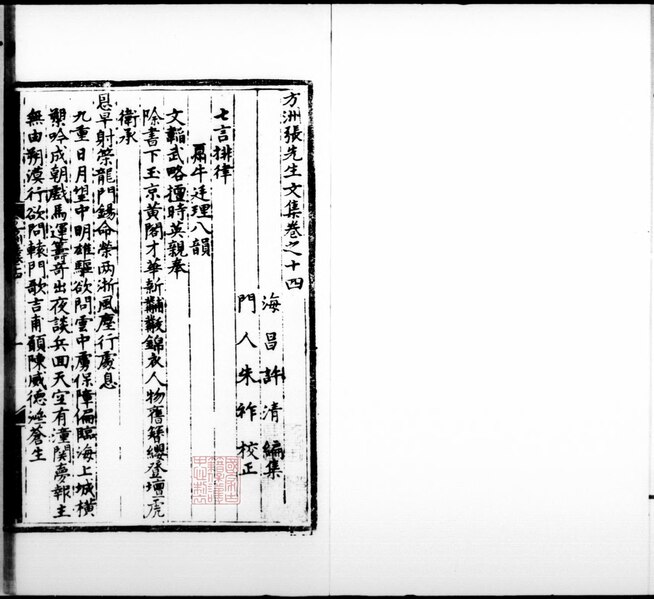 方洲張先生文集卷之十四
海昌許清編集
門人朱祚校正
七言排律
牛廷理八韻
文韜武略擅時英親奉
除書下玉京黃閣才華新黼黻錦衣人物舊簪纓登壇虎
衛承
恩早射策龍門錫命榮兩浙風塵行處息
九重日月望中明雄驅欲問雲中虜保障偏臨海上城橫
槊吟成朝戲馬運籌奇出夜談兵回天定有潼關夢報主
無由朔漠行欲問轅門歌吉甫願陳威德遍蒼生